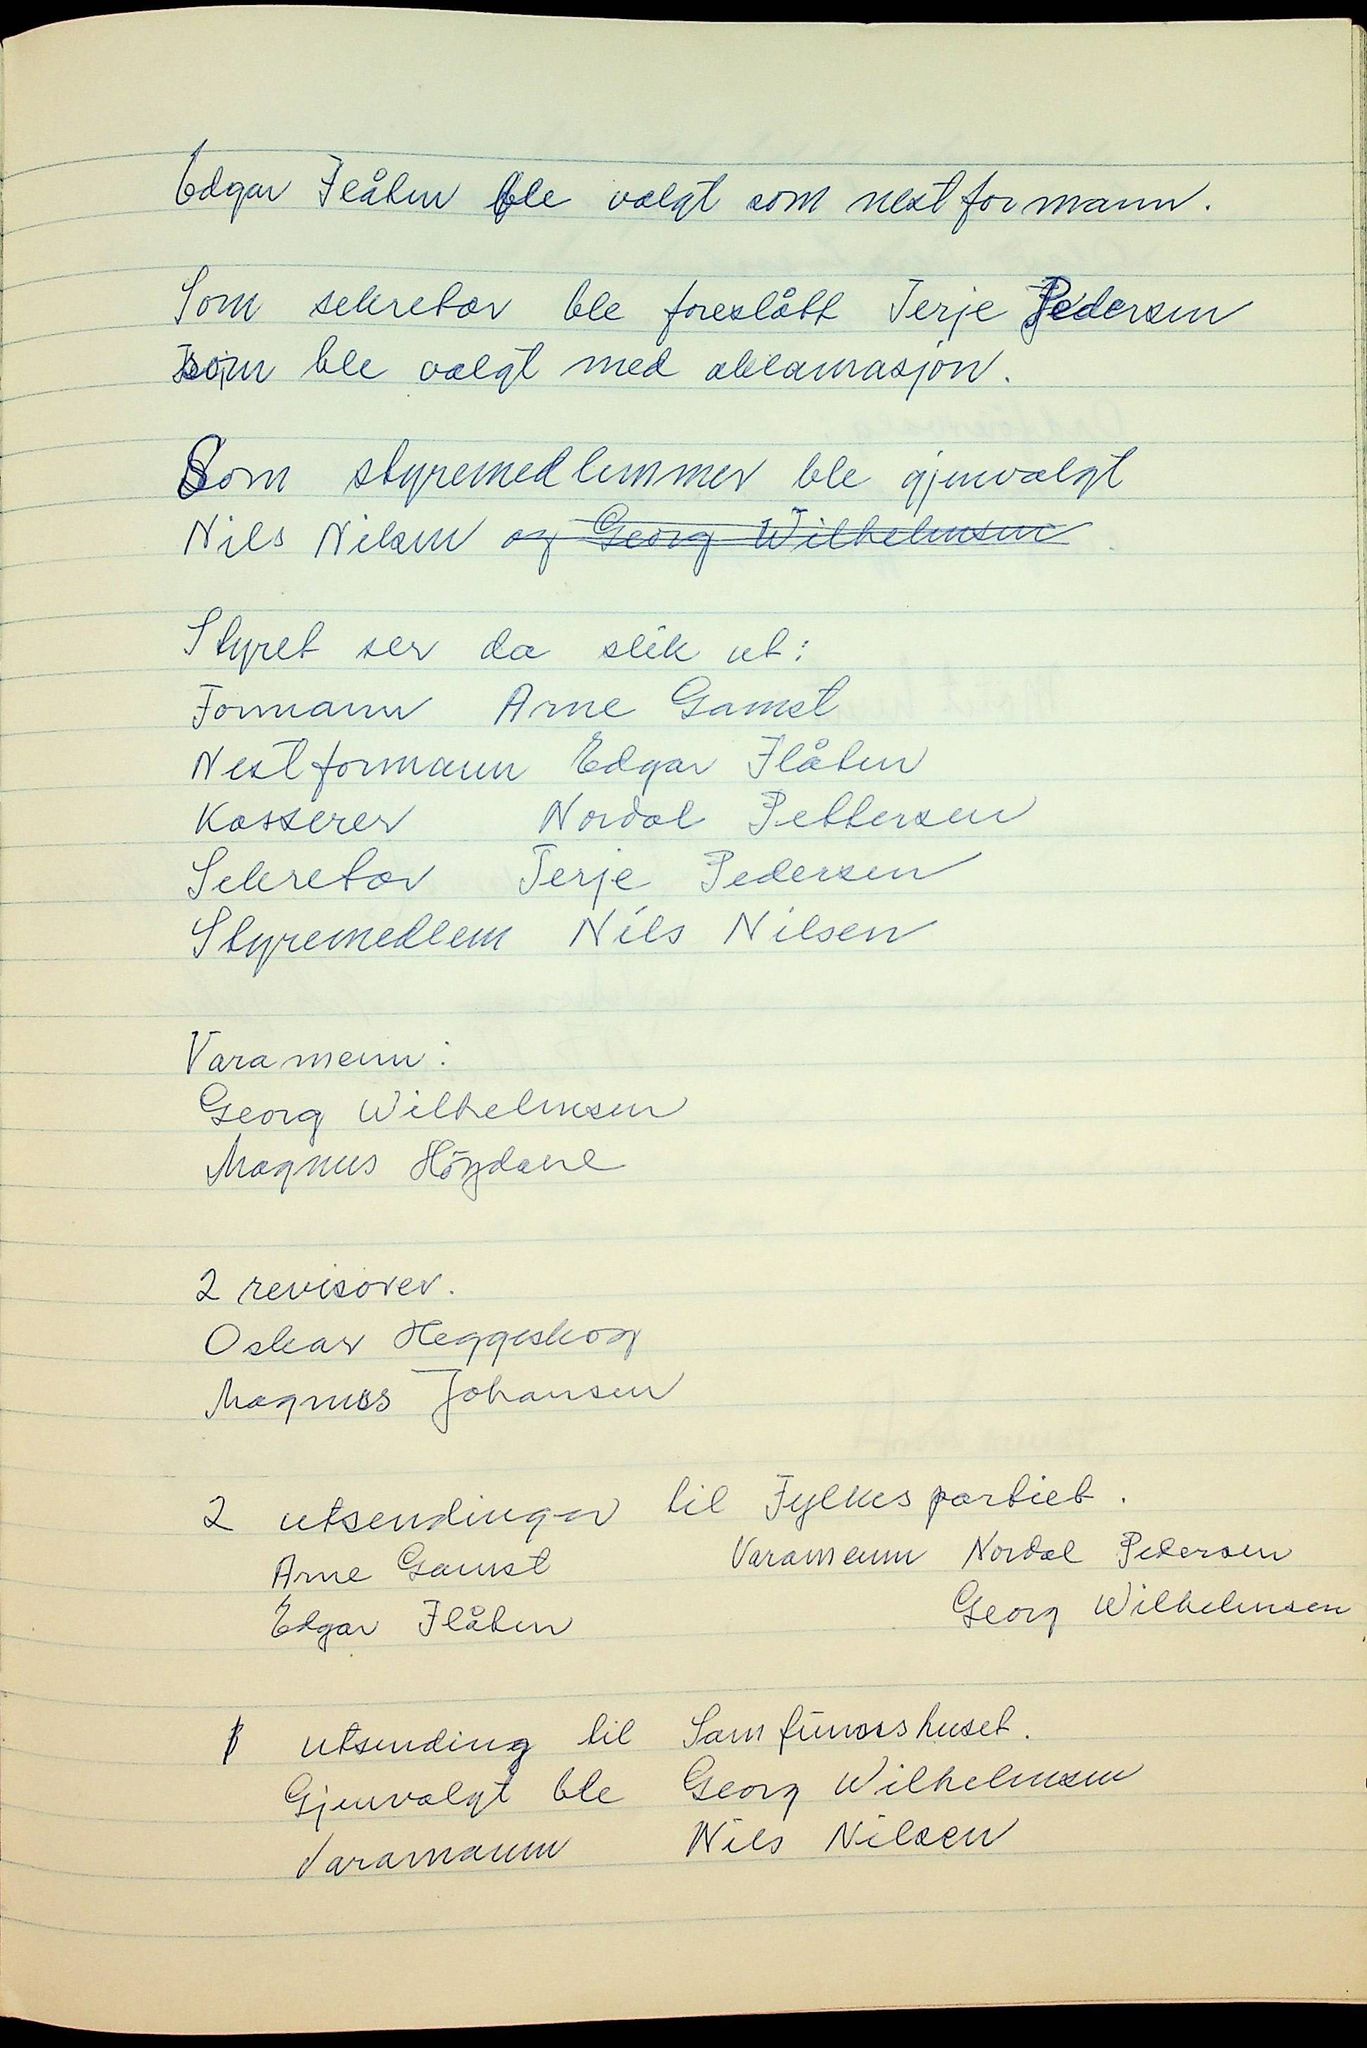 Edgar Flåten ble valgt som nestformann.
Som sekretær ble foreslått Terje Pedersen
som ble valgt med aklamasjon.
Som styremedlemmer ble gjenvalgt
Nils Nilsen og Georg Wilhelmsen
Styret ser da slik ut:
Formann Arne Gamst
Nestformann Edgar Flåten
Kasserer Nordal Pettersen
Sekretær Terje Pedersen
Styremedlem Nils Nilsen
Varamenn:
Georg Wilhelmsen
Magnus Höydahl
2 revisorer.
Oskar Heggeskog
Magnus Johansen
2 utsendinger til Fylkespartiet.
Arne Gamst Varamenn Nordal Pedersen
Edgar Flåten Georg Wilhelmsen
1 utsending til Samfunnshuset.
Gjenvalgt ble Georg Wilhelmsen
Varamann Nils Nilsen